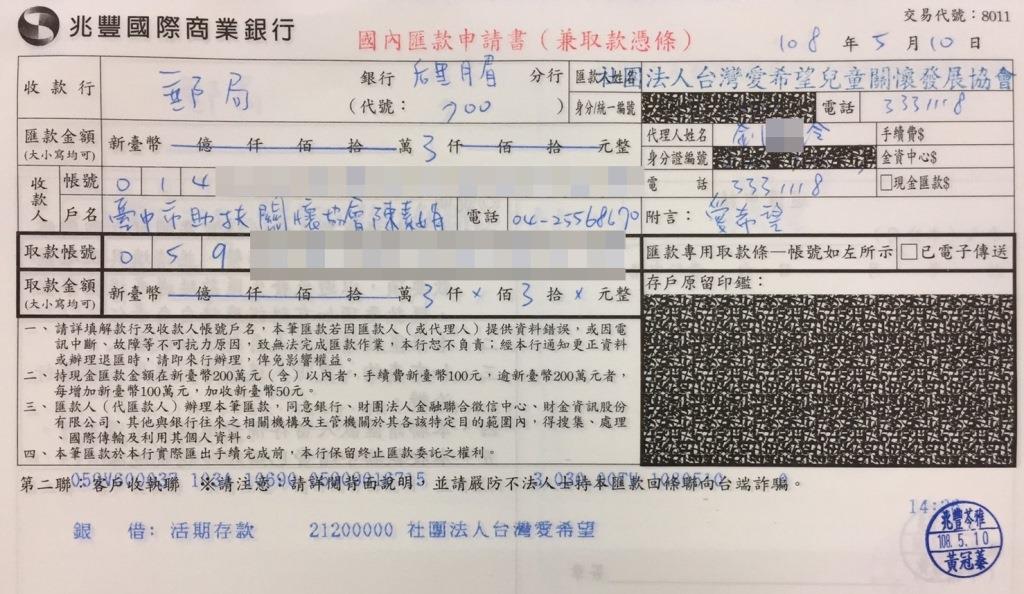 兆豐國際商業銀行
交易代號：8011
國內匯款申請書（兼取款憑條）
108 年 5 月 10 日
收款行 郵局 銀行 后里月眉 分行
（代號： 700 ）
社團法人台灣愛希望兒童關懷發展協會
身分/統一編號 電話 3331118
匯款金額 (大小寫均可) 新臺幣 億 仟 佰 拾 萬 3 仟 佰 拾 元整
代理人姓名 手續費$
身分證編號 金資中心$
電話 3331118 □現金匯款$
收款人 帳號 014
戶名 臺中市助扶關懷協會陳 電話 04-25568670
附言：愛希望
取款帳號 059
匯款專用取款條—帳號如左所示 □已電子傳送
取款金額 (大小寫均可) 新臺幣 億 仟 佰 拾 萬 3 仟 × 佰 3 拾 × 元整
存戶原留印鑑：
一、請詳填解款行及收款人帳號戶名，本筆匯款若因匯款人（或代理人）提供資料錯誤，或因電
訊中斷、故障等不可抗力原因，致無法完成匯款作業，本行恕不負責；經本行通知更正資料
或辦理退匯時，請即來行辦理，俾免影響權益。
二、持現金匯款金額在新臺幣200萬元（含）以內者，手續費新臺幣100元，逾新臺幣200萬元者，
每增加新臺幣100萬元，加收新臺幣50元。
三、匯款人（代匯款人）辦理本筆匯款，同意銀行、財團法人金融聯合徵信中心、財金資訊股份
有限公司、其他與銀行往來之相關機構及主管機關於其各該特定目的範圍內，得搜集、處理
、國際傳輸及利用其個人資料。
四、本筆匯款於本行實際匯出手續完成前，本行保留終止匯款委託之權利。
第二聯：客戶收執聯 ※請注意：請詳閱背面說明，並請嚴防不法人士持本匯款回條聯向台端詐騙。
銀 借：活期存款 21200000 社團法人台灣愛希望
兆豐苓雅
108.5.10
黃冠蓁